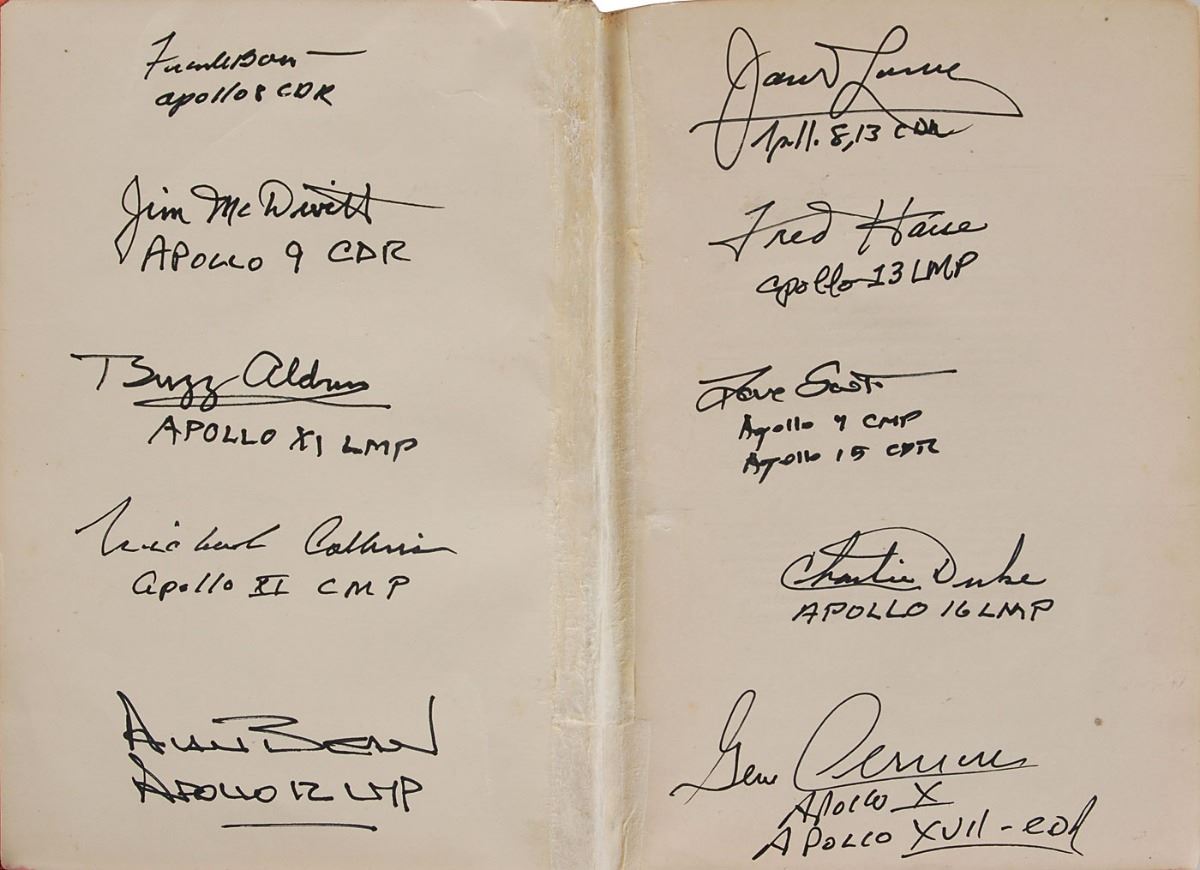 Frank Borman
Apollo 8 CDR
Jim McDivitt
APOLLO 9 CDR
Buzz Aldrin
APOLLO XI LMP
Michael Collins
Apollo XI CMP
Alan Bean
APOLLO 12 LMP
James Lovell
Apollo 8, 13 CDR
Fred Haise
Apollo 13 LMP
Dave Scott
Apollo 9 CMP
Apollo 15 CDR
Charlie Duke
APOLLO 16 LMP
Gene Cernan
APOLLO X
APOLLO XVII - CDR